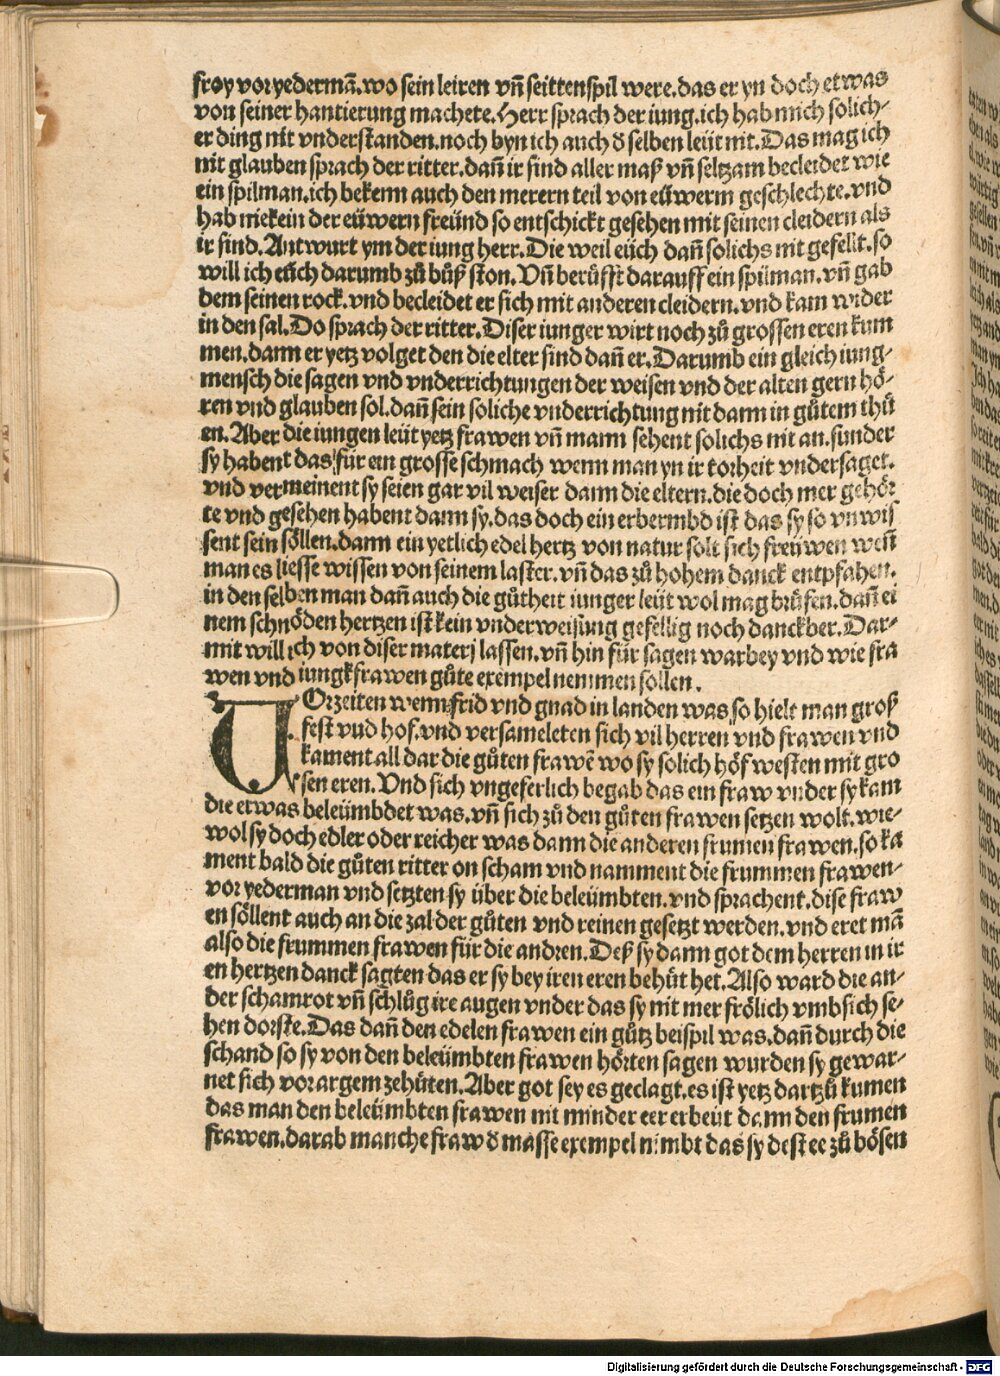 froy vor yedermā. wo sein leiren vñ seittenspil were. das er yn doch etwas
von seiner hantierung machete. Herr sprach der iung. ich hab mich solich-
er ding nit vnderstanden. noch byn ich auch d̄ selben leüt nit. Das mag ich
nit glauben sprach der ritter. dañ ir sind aller maß vñ seltzam becleidet wie
ein spilman. ich bekenn auch den merern teil von eüwerm geschlechte. vnd
hab niekein der eüwern freünd so entschickt gesehen mit seinen cleidern als
ir sind. Antwurt ym der iung herr. Die weil eüch dañ solichs nit gefellt. so
will ich eüch darumb zů bůß ston. Vñ berůfft darauff ein spilman. vñ gab
dem seinen rock. vnd becleidet er sich mit anderen cleidern. vnd kam wider
in den sal. Do sprach der ritter. Diser iunger wirt noch zů grossen eren kum
men. dann er yetz volget den die elter sind dañ er. Darumb ein gleich iung-
mensch die sagen vnd vnderrichtungen der weisen vnd der alten gern hö-
ren vnd glauben sol. dañ sein soliche vnderrichtung nit dann in gůtem thů
en. Aber die iungen leüt yetz frawen vñ mann sehent solichs nit an. sunder
sy habent das für ein grosse schmach wenn man yn ir torheit vndersaget.
vnd vermeinent sy seien gar vil weiser dann die eltern. die doch mer gehör
te vnd gesehen habent dann sy. das doch ein erbermbd ist das sy so vnwis
sent sein söllen. dann ein yetlich edel hertz von natur solt sich freüwen weñ
man es liesse wissen von seinem laster. vñ das zů hohem danck entpfahen.
in den selben man dañ auch die gůtheit iunger leüt wol mag brüfen. dañ ei
nem schnöden hertzen ist kein vnderweisung gefellig noch danckber. Dar-
mit will ich von diser materj lassen. vñ hin für sagen warbey vnd wie fra
wen vnd iungkfrawen gůte exempel nemmen sollen.
VOrzeiten wenn frid vnd gnad in landen was, so hielt man groß
fest vnd hof. vnd versameleten sich vil herren vnd frawen vnd
kament all dar die gůten frawē wo sy solich höf westen mit gro
sen eren. Vnd sich vngeferlich begab das ein fraw vnder sy kam
die etwas beleümbdet was. vñ sich zů den gůten frawen setzen wolt. wie-
wol sy doch edler oder reicher was dann die anderen frumen frawen. so ka
ment bald die gůten ritter on scham vnd namment die frummen frawen-
vor yederman vnd setzten sy über die beleümbten. vnd sprachent. dise fraw
en söllent auch an die zal der gůten vnd reinen gesetzt werden. vnd eret mā
also die frummen frawen für die andren. Deß sy dann got dem herren in ir
en hertzen danck sagten das er sy bey iren eren behüt het. Also ward die an-
der schamrot vñ schlůg ire augen vnder das sy nit mer frölich vmbsich se-
hen dorste. Das dañ den edelen frawen ein gůtz beispil was. dañ durch die
schand so sy von den beleümbten frawen hörten sagen wurden sy gewar-
net sich vor argem zehüten. Aber got sey es geclagt. es ist yetz dartzů kumen
das man den beleümbten frawen nit minder eer erbeüt dann den frumen
frawen. darab manche fraw d̄ masse exempel nimbt das sy dest ee zů bösen
Digitalisierung gefördert durch die Deutsche Forschungsgemeinschaft - DFG